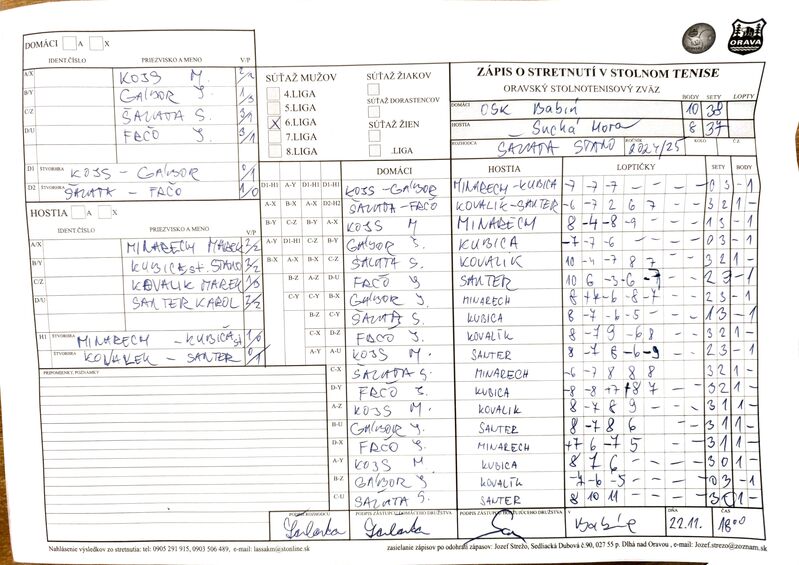 DOMÁCI A X
IDENT.ČÍSLO PRIEZVISKO A MENO V/P
A/X KOJS M. 2/2
B/Y GÁBOR J. 1/3
C/Z ŠALATA S. 3/1
D/U FRČO J. 3/1
D1 ŠTVORHRA KOJS - GÁBOR 0/1
D2 ŠTVORHRA ŠALATA - FRČO 1/0
HOSTIA A X
IDENT.ČÍSLO PRIEZVISKO A MENO V/P
A/X MINARECH MAREK 2/2
B/Y KUBICA st. STANO 2/2
C/Z KOVALIK MAREK 1/3
D/U SANTER KAROL 2/2
H1 ŠTVORHRA MINARECH - KUBICA st 1/0
ŠTVORHRA KOVALIK - SANTER 0/1
PRIPOMIENKY, POZNAMKY
SÚŤAŽ MUŽOV
4.LIGA
5.LIGA
X 6.LIGA
7.LIGA
8.LIGA
SÚŤAŽ ŽIAKOV
SÚŤAŽ DORASTENCOV
SÚŤAŽ ŽIEN
.LIGA
ORAVA
ZÁPIS O STRETNUTÍ V STOLNOM TENISE
ORAVSKÝ STOLNOTENISOVÝ ZVÄZ
BODY SETY LOPTY
DOMÁCI OŠK Babín 10 38
HOSTIA Suchá Hora 8 37
ROZHODCA ŠALATA STANO ROČNÍK 2024/25 KOLO Č.Z.
DOMÁCI HOSTIA LOPTIČKY SETY BODY
D1-H1 A-Y D1-H1 D1-H1 KOJS - GÁBOR MINARECH - KUBICA -7 -7 -7 - - 0 3 - 1
A-X B-X A-X D2-H2 ŠALATA - FRČO KOVALIK - SANTER -6 -7 2 6 7 3 2 1 -
B-Y C-Z B-Y A-X KOJS M MINARECH 8 -4 -8 -9 - 1 3 - 1
A-Y D1-H1 C-Z B-Y GÁBOR J. KUBICA -7 -7 -6 - - 0 3 - 1
B-X A-X D-U C-Z ŠALATA S. KOVALIK 10 -4 -7 8 7 3 2 1 -
B-Z A-Z D-U FRČO J SANTER 10 6 -3 -6 -7 2 3 - 1
C-Y B-X GÁBOR J. MINARECH 2 3 - 1
B-Z C-Y ŠALATA S. KUBICA 8 -7 -6 -5 - 1 3 - 1
C-X D-Z FRČO J. KOVALÍK 8 -7 9 -6 8 3 2 1 -
A-Z A-U KOJS M. SANTER 8 -7 8 -6 -9 2 3 - 1
C-X ŠALATA S. MINARECH -6 -7 8 8 8 3 2 1 -
D-Y FRČO J. KUBICA 3 2 1 -
A-Z KOJS M. KOVALIK 8 -7 8 9 - 3 1 1 -
B-U GÁBOR J. SANTER 8 -7 8 6 - 3 1 1 -
D-X FRČO J. MINARECH +7 6 -7 5 - 3 1 1 -
A-Y KOJS M. KUBICA 8 7 6 - - 3 0 1 -
B-Z GÁBOR J KOVALÍK -7 -6 -5 - - 0 3 - 1
C-U ŠALATA S. SANTER 8 10 11 - - 3 0 1 -
PODPIS ROZHODCU PODPIS ZÁSTUPCU DOMÁCEHO DRUŽSTVA PODPIS ZÁSTUPCU HOSŤUJÚCEHO DRUŽSTVA V Babíne DŇA 22.11. ČAS 18 00
Nahlásenie výsledkov zo stretnutia: tel: 0905 291 915, 0903 506 489, e-mail: lassakm@stonline.sk
zasielanie zápisov po odohratí zápasov: Jozef Strežo, Sedliacka Dubová č.90, 027 55 p. Dlhá nad Oravou , e-mail: Jozef.strezo@zoznam.sk